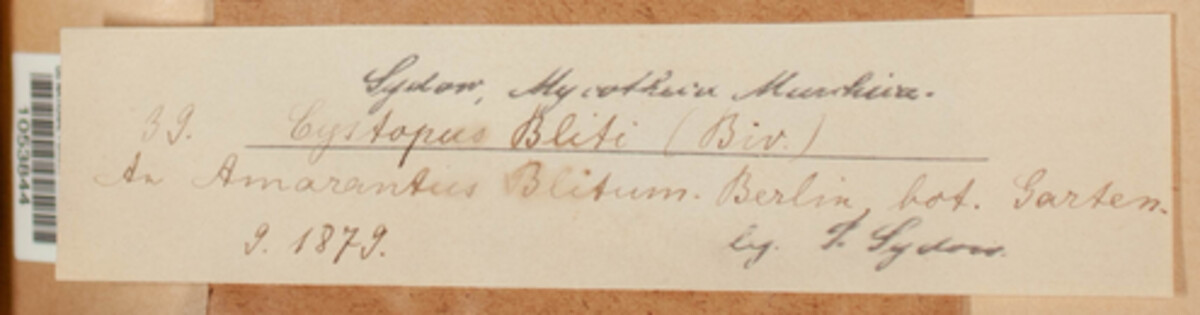 Sydow, Mycotheca Marchica.
39. Cystopus Bliti (Biv.)
An Amarantus Blitum. Berlin, bot. Garten.
9. 1879. leg. P. Sydow.
1053844